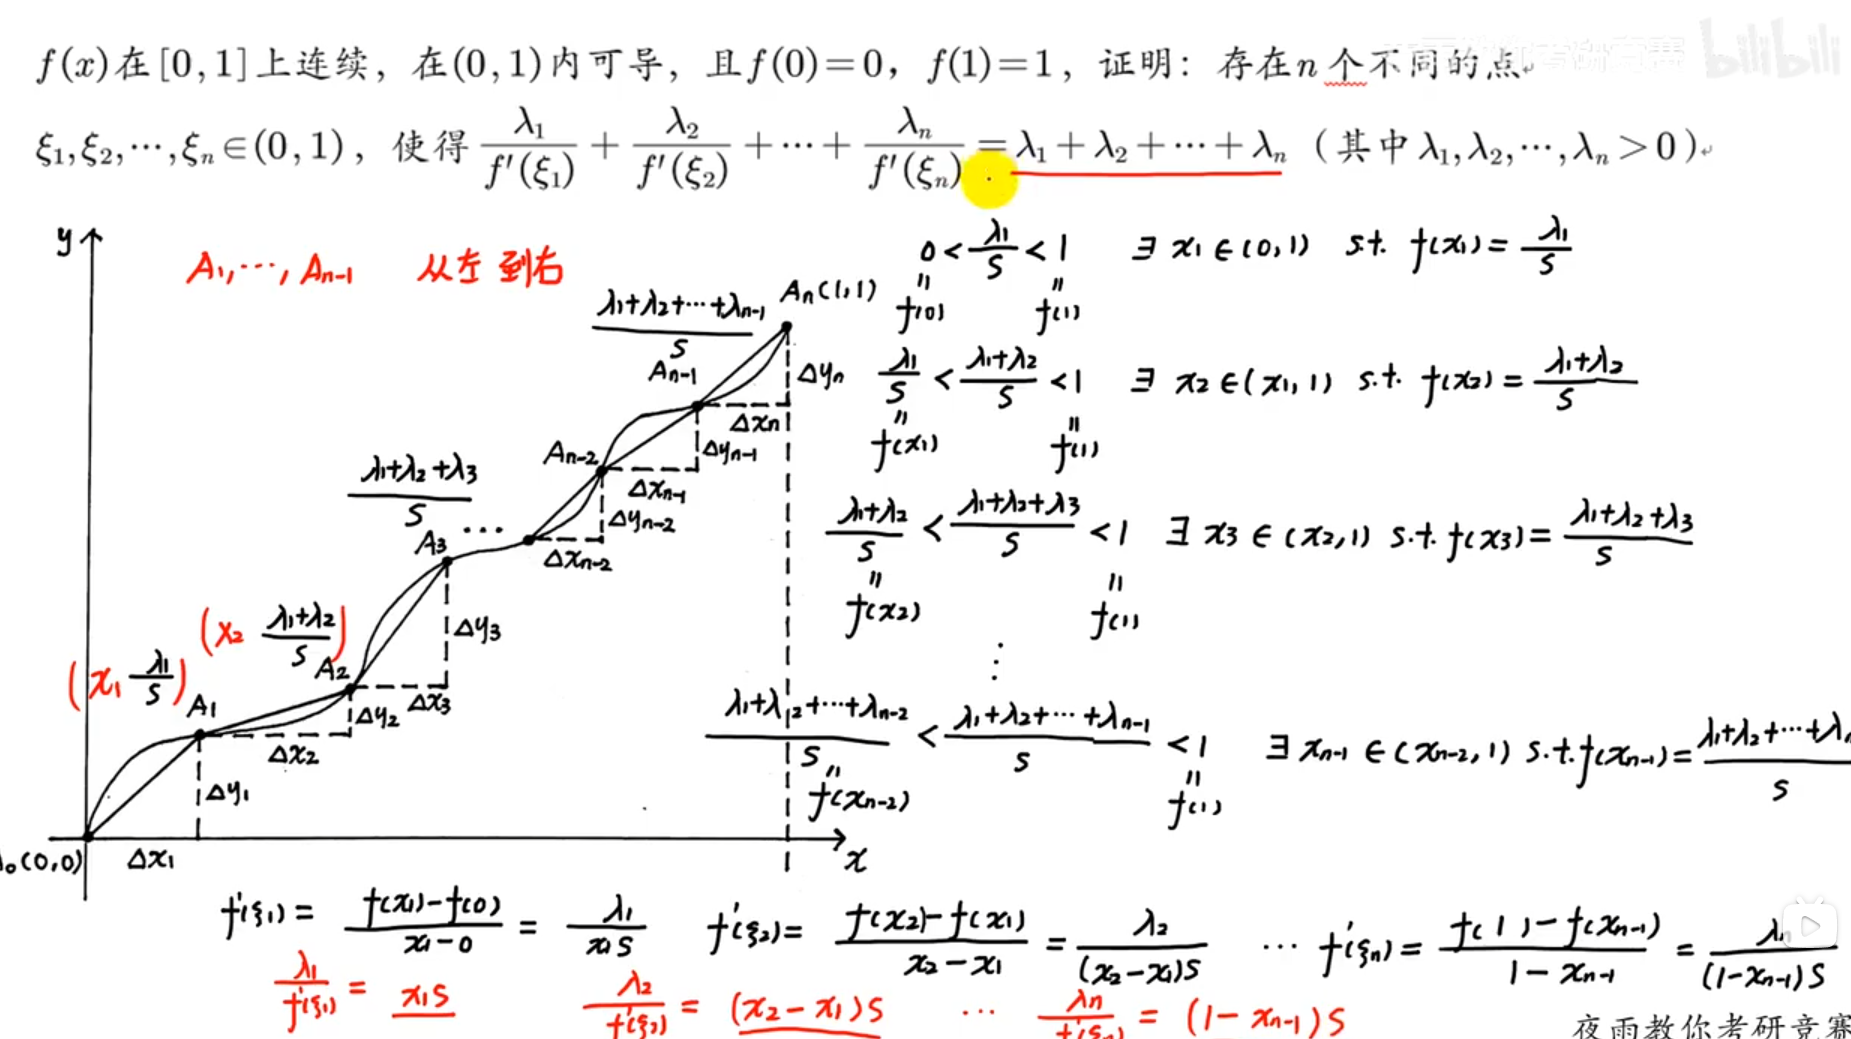 f(x)在[0,1]上连续，在(0,1)内可导，且f(0)=0，f(1)=1，证明：存在n个不同的点
ξ₁,ξ₂,⋯,ξₙ∈(0,1)，使得 λ₁/f′(ξ₁) + λ₂/f′(ξ₂) + ⋯ + λₙ/f′(ξₙ) = λ₁+λ₂+⋯+λₙ（其中λ₁,λ₂,⋯,λₙ>0）
bilibili
y
A₁,⋯,Aₙ₋₁ 从左到右
(λ₁+λ₂+⋯+λₙ₋₁)/S
Aₙ(1,1)
Aₙ₋₁
Δyₙ
Δxₙ
Aₙ₋₂
Δyₙ₋₁
Δxₙ₋₁
Δyₙ₋₂
Δxₙ₋₂
(λ₁+λ₂+λ₃)/S
⋯
A₃
Δy₃
Δx₃
(x₂ (λ₁+λ₂)/S)
A₂
Δy₂
Δx₂
(x₁ λ₁/S)
A₁
Δy₁
Δx₁
₀(0,0)
x
0 < λ₁/S < 1 ∃ x₁∈(0,1) s.t. f(x₁)= λ₁/S
" "
f(0) f(1)
λ₁/S < (λ₁+λ₂)/S < 1 ∃ x₂∈(x₁,1) s.t. f(x₂)= (λ₁+λ₂)/S
" "
f(x₁) f(1)
(λ₁+λ₂)/S < (λ₁+λ₂+λ₃)/S < 1 ∃ x₃∈(x₂,1) s.t. f(x₃)= (λ₁+λ₂+λ₃)/S
" "
f(x₂) f(1)
⋮
(λ₁+λ₂+⋯+λₙ₋₂)/S < (λ₁+λ₂+⋯+λₙ₋₁)/S < 1 ∃ xₙ₋₁∈(xₙ₋₂,1) s.t. f(xₙ₋₁)= (λ₁+λ₂+⋯+λₙ)/S
" "
f(xₙ₋₂) f(1)
f′(ξ₁)= (f(x₁)−f(0))/(x₁−0) = λ₁/(x₁S) f′(ξ₂)= (f(x₂)−f(x₁))/(x₂−x₁) = λ₂/((x₂−x₁)S) ⋯ f′(ξₙ)= (f(1)−f(xₙ₋₁))/(1−xₙ₋₁) = λₙ/((1−xₙ₋₁)S)
λ₁/f′(ξ₁) = x₁S λ₂/f′(ξ₂) = (x₂−x₁)S ⋯ λₙ/f′(ξₙ) = (1−xₙ₋₁)S
夜雨教你考研竞赛